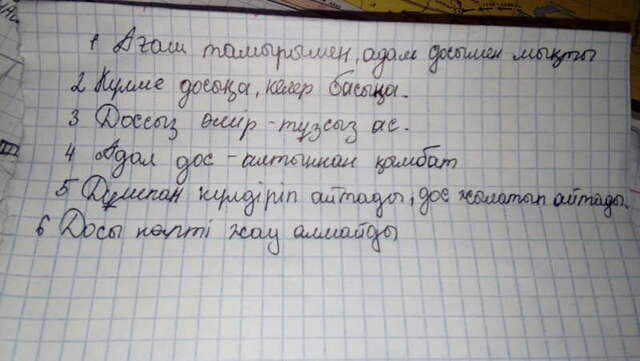 1 Ағаш тамырымен, адам досымен мықты
2 Күлме досыңа, келер басыңа.
3 Доссыз өмір - тұзсыз ас.
4 Адал дос - алтыннан қымбат
5 Дұшпан күлдіріп айтады, дос жылатып айтады.
6 Досы көпті жау алмайды